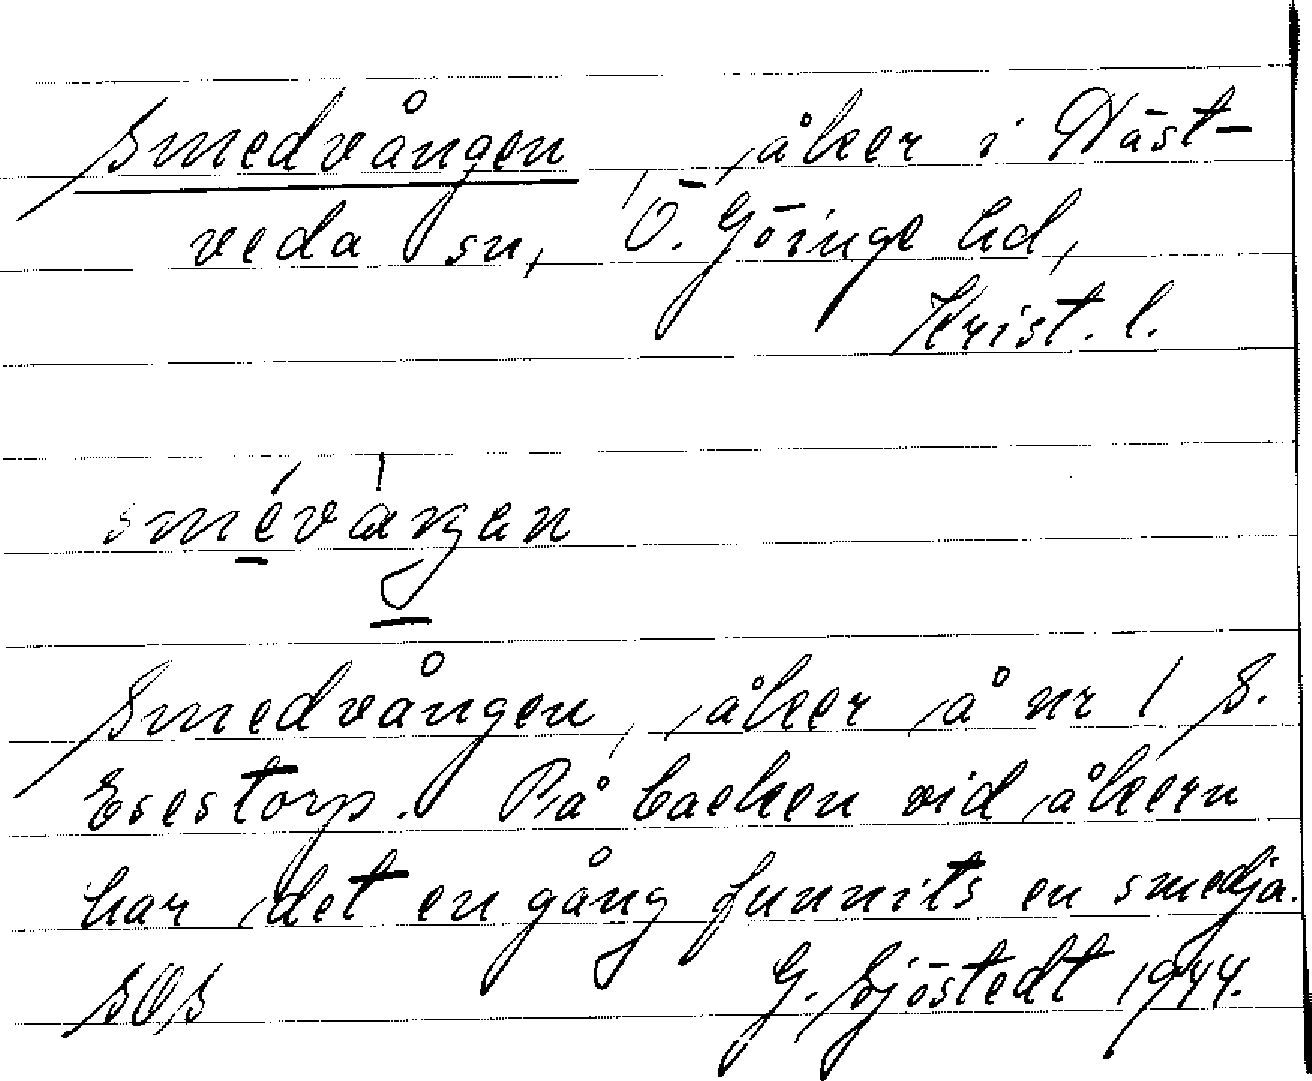 Smedvången, åker i Näst-
veda sn, Ö. Göinge hd,
Krist. l.
smévángen
Smedvången, åker å nr 1 S.
Esestorp. På backen vid åkern
har det en gång funnits en smedja.
SOS G. Sjöstedt 1944.